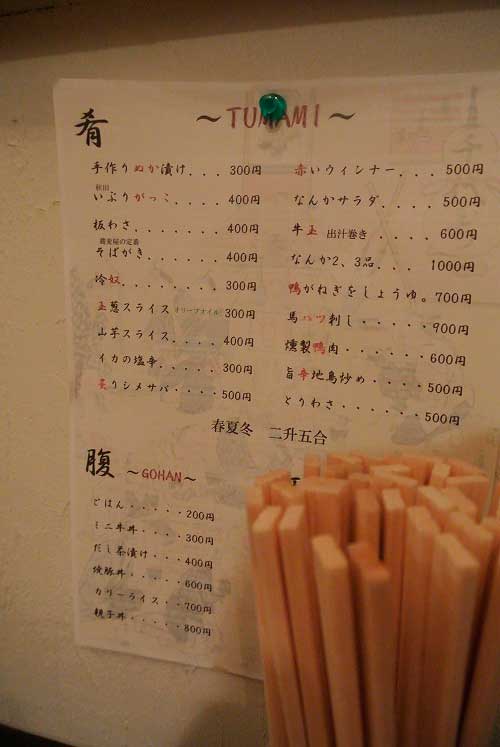 肴 ～TUMAMI～
手作りぬか漬け....300円
秋田
いぶりがっこ.....400円
板わさ........400円
蕎麦屋の定番
そばがき.......400円
冷奴........300円
玉葱スライス オリーブオイル 300円
山芋スライス.....400円
イカの塩辛......300円
炙りシメサバ.....500円
赤いウィンナー...500円
なんかサラダ....500円
牛玉 出汁巻き ....600円
なんか2、3品... 1000円
鴨がねぎをしょうゆ。700円
馬ハツ刺し.....900円
燻製鴨肉......600円
旨辛地鳥炒め....500円
とりわさ......500円
春夏冬 二升五合
腹 ～GOHAN～
ごはん.....200円
ミニ牛丼....300円
だし茶漬け...400円
豚丼.....600円
カリーライス..700円
親子丼.....800円